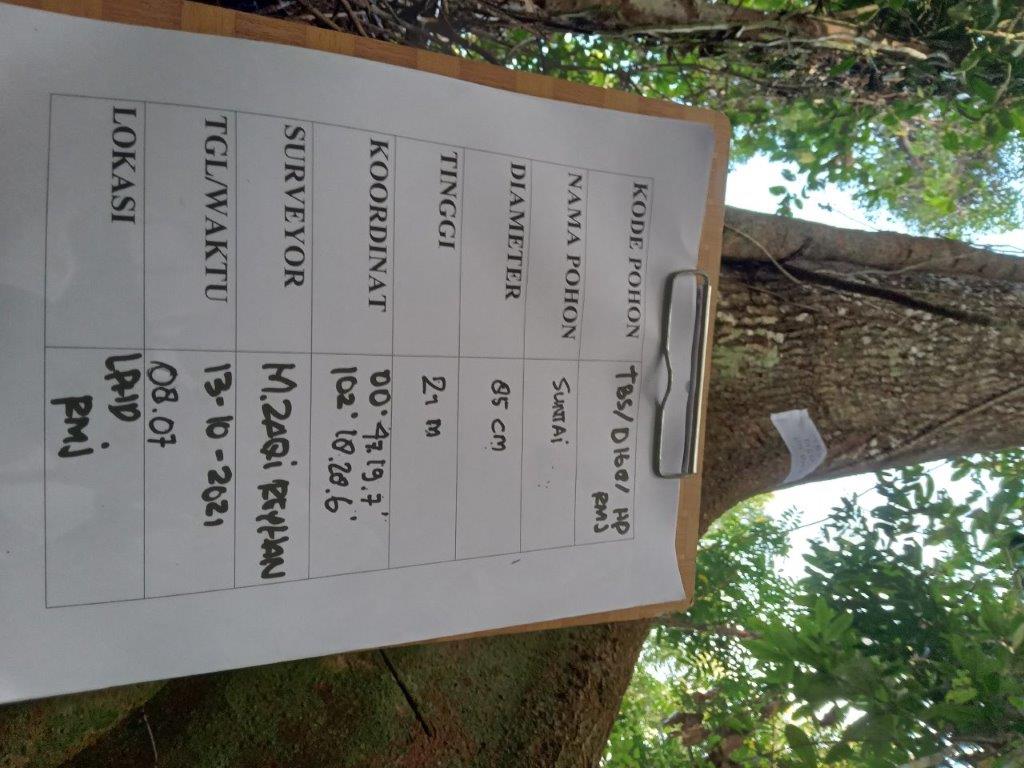 KODE POHON TBS/D168/ HP
RMJ
NAMA POHON SUNTAi
DIAMETER 85 CM
TINGGI 21 M
KOORDINAT 00° 47.19.7'
102° 18.28.6'
SURVEYOR M.ZAQi REYHAN
TGL/WAKTU 13-10-2021
08.07
LOKASI LPHD
RMJ